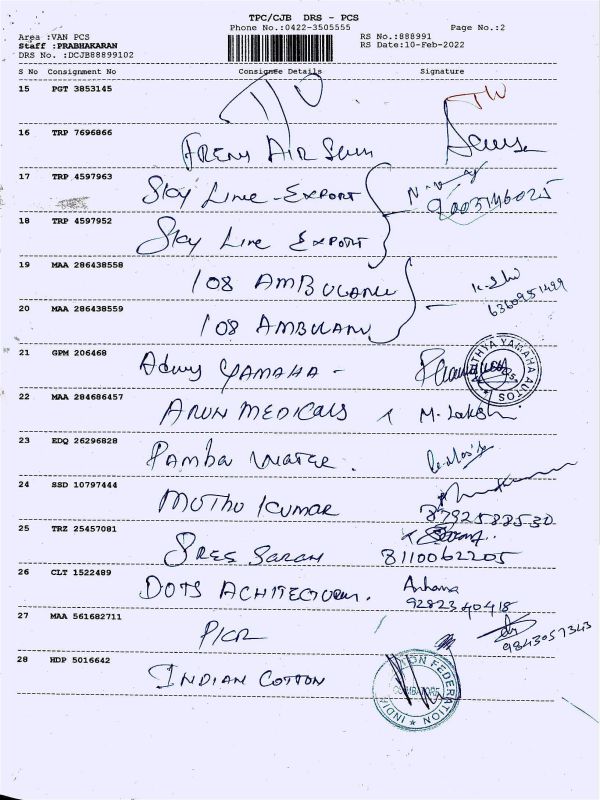 TPC/CJB DRS - PCS
Phone No.:0422-3505555 Page No.:2
Area :VAN PCS RS No.:888991
Staff :PRABHAKARAN RS Date:10-Feb-2022
DRS No. :DCJB88899102
S No Consignment No Consignee Details Signature
15 PGT 3853145
16 TRP 7696866 AIR
17 TRP 4597963 Sky Line - Export 9003746025
18 TRP 4597952 Sky Line Export
19 MAA 286438558 108 AMBULANCE
6360951499
20 MAA 286438559 108 AMBULAN
21 GPM 206468 YAMAHA - YAMAHA AUTOS
22 MAA 284686457 ARUN MEDICALS M. Lakshmi
23 EDQ 26296828 PAMBA WATER.
24 SSD 10797444 MUTHU KUMAR 8792588530
25 TRZ 25457081 SREE SARAN 8110062205
26 CLT 1522489 DOTS ACHITECTURE. Anhana
9282340418
27 MAA 561682711 PICR 9843057343
28 HDP 5016642 INDIAN COTTON COIMBATORE